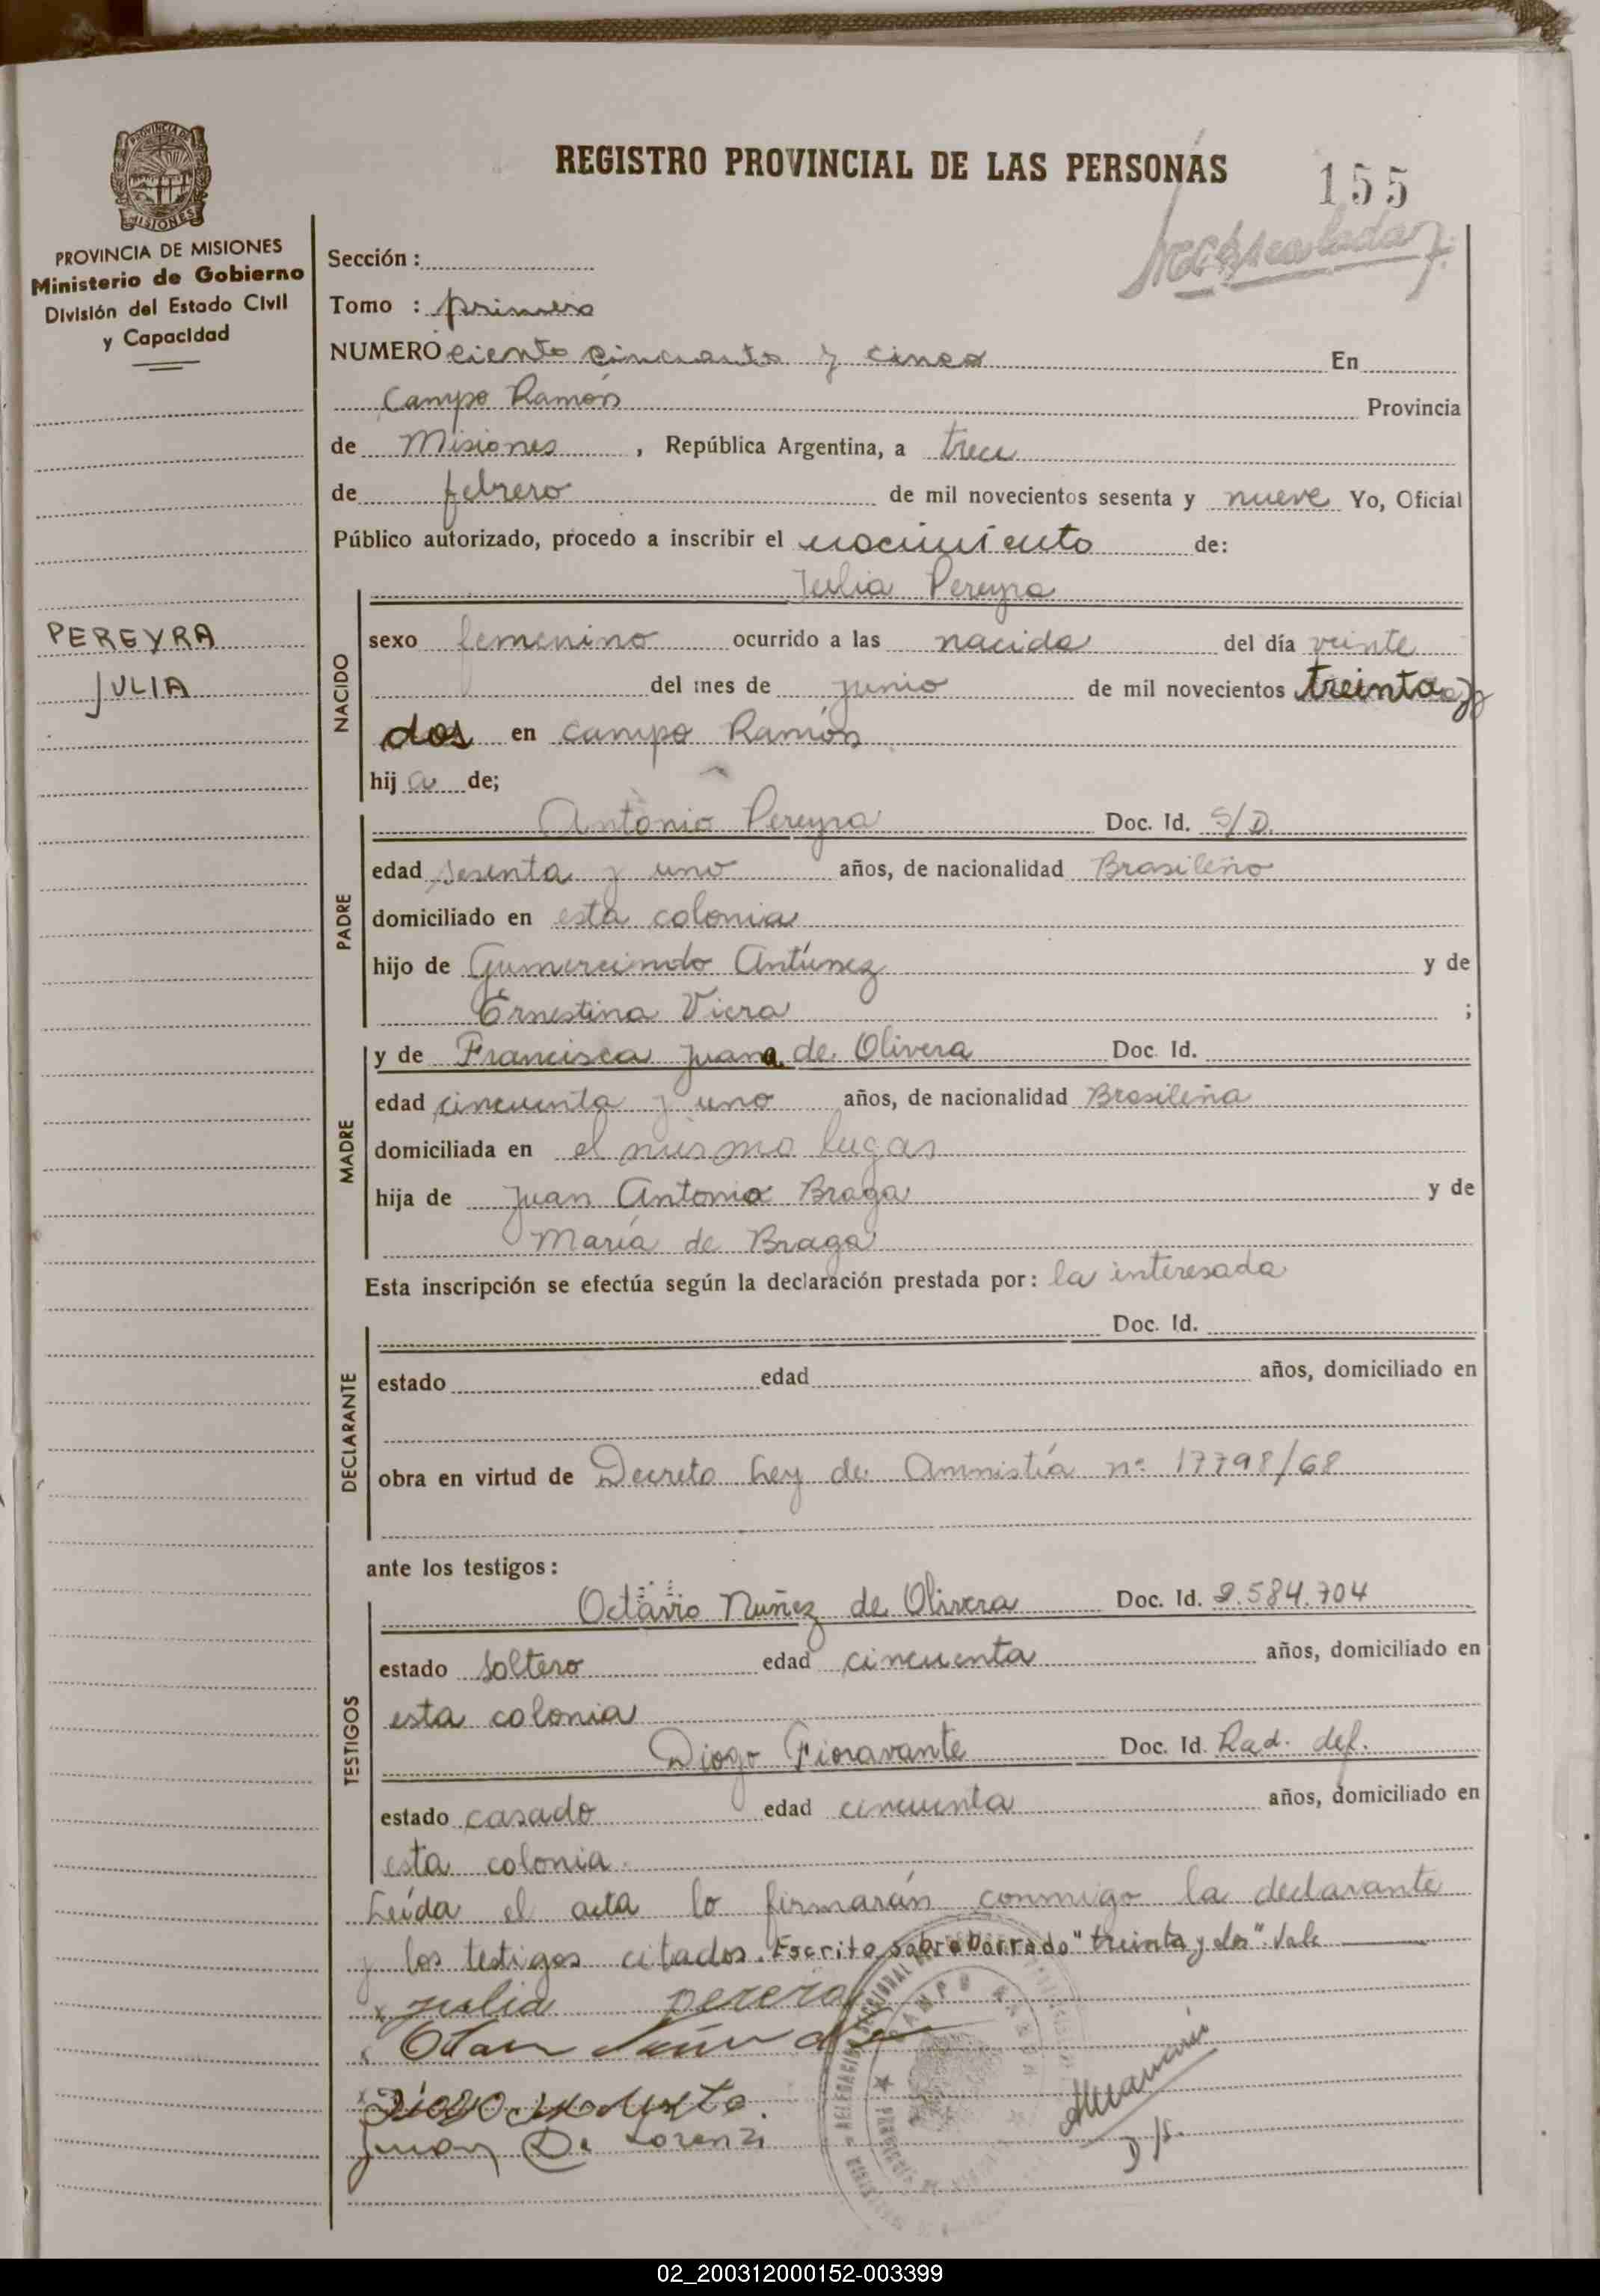 REGISTRO PROVINCIAL DE LAS PERSONAS
155
PROVINCIA DE MISIONES
Ministerio de Gobierno
División del Estado Civil
y Capacidad
PEREYRA
JULIA
Sección :
Tomo : primero
NUMERO ciento cincuenta y cinco En
Campo Ramón Provincia
de Misiones , República Argentina, a trece
de febrero de mil novecientos sesenta y nueve Yo, Oficial
Público autorizado, procedo a inscribir el nacimiento de:
NACIDO
Julia Pereyra
sexo femenino ocurrido a las nacida del día veinte
del mes de junio de mil novecientos treinta y
dos en campo Ramón
hij a de;
PADRE
Antonio Pereyra Doc. Id. S/D.
edad sesenta y uno años, de nacionalidad Brasileño
domiciliado en esta colonia
hijo de Gumercindo Antúnez y de
Ernestina Viera ;
MADRE
y de Francisca Juana de Olivera Doc. Id.
edad cincuenta y uno años, de nacionalidad Brasileña
domiciliada en el mismo lugar
hija de Juan Antonio Braga y de
María de Braga
Esta inscripción se efectúa según la declaración prestada por: la interesada
DECLARANTE
Doc. Id.
estado edad años, domiciliado en
obra en virtud de Decreto Ley de Amnistía nº 17798/68
ante los testigos:
TESTIGOS
Octavio Nuñez de Olivera Doc. Id. 2.584.704
estado soltero edad cincuenta años, domiciliado en
esta colonia
Diogo Fioravante Doc. Id. Rad. def.
estado casado edad cincuenta años, domiciliado en
esta colonia.
Leída el acta lo firmarán conmigo la declarante
y los testigos citados. Escrito sobre borrado "treinta y dos". Vale
x julia pererа
Juan De Lorenzi
D/S.
02_200312000152-003399